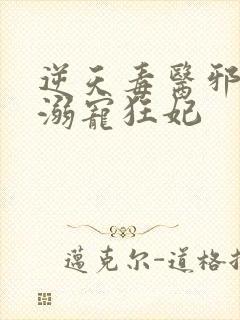 逆天毒醫邪
溺寵狂妃
邁克尔-道格拉